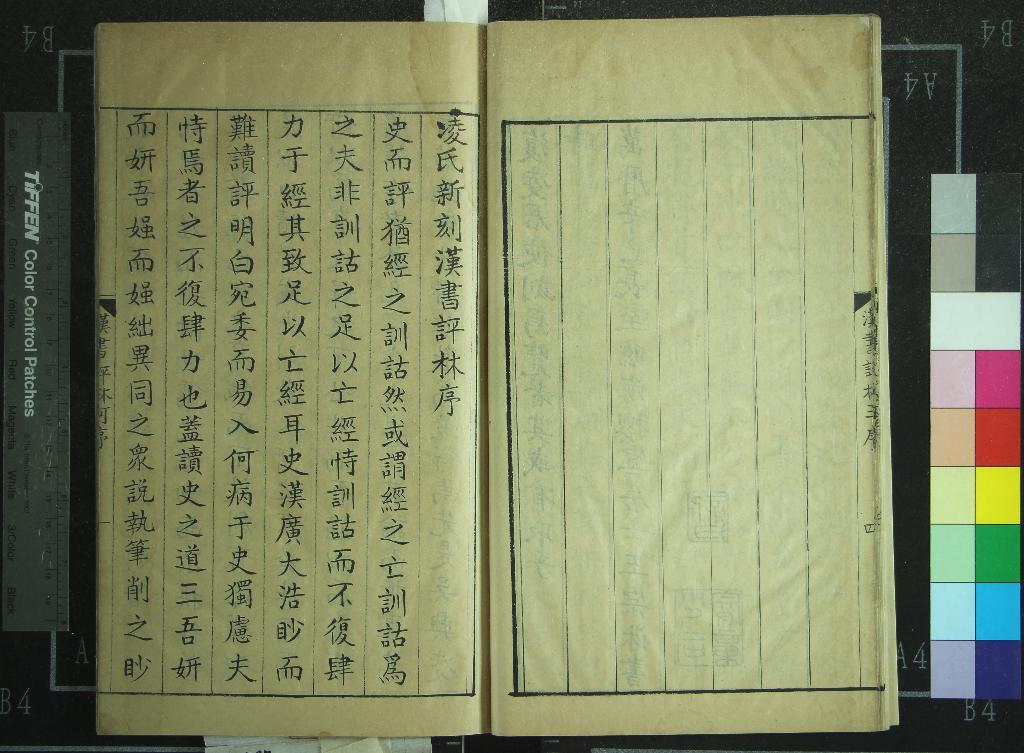 漢書評林王序
四
凌氏新刻漢書評林序
史而評猶經之訓詁然或謂經之亡訓詁爲
之夫非訓詁之足以亡經恃訓詁而不復肆
力于經其致足以亡經耳史漢廣大浩眇而
難讀評明白宛委而易入何病于史獨慮夫
恃焉者之不復肆力也蓋讀史之道三吾妍
而妍吾媸而媸絀異同之衆説執筆削之眇
漢書評林何序
一
TIFFEN Color Control Patches
Blue
Cyan
Green
Yellow
Red
Magenta
White
3/Color
Black
B4
B4
A4
A4
A4
B4
B4